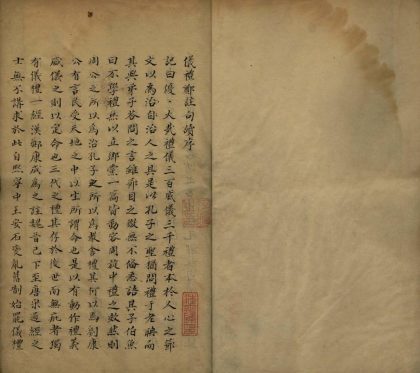 儀禮鄭註句讀序
記曰優優大哉禮儀三百威儀三千禮者本於人心之節
文以為治自治人之具是以孔子之聖猶問禮于老聃而
其與弟子答問之言雖節目之微無不備悉語其子伯魚
曰不學禮無以立鄉黨一篇皆動容周旋中禮之效然則
周公之所以為治孔子之所以為教舍禮其何以焉劉康
公有言民受天地之中以生所謂命也是以有動作禮義
威儀之則以定命也三代之禮其存於後世而無疵者獨
有儀禮一經漢鄭康成為之註魏晉已下至唐宋通經之
士無不講求於此自熙寧中王安石變亂舊制始罷儀禮